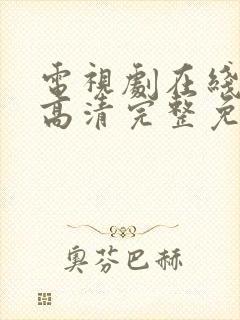 電視劇在綫
高清完整免
奥芬巴赫